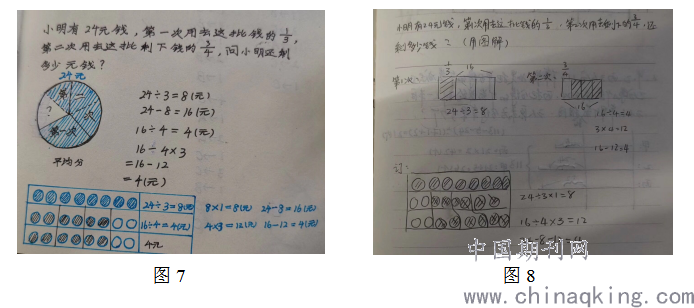 小明有24元钱，第一次用去这批钱的1/3，
第二次用去这批剩下钱的3/4，问小明还剩
多少元钱？
24元
第一次
？
第二次
平均分
24÷3=8(元)
24-8=16(元)
16÷4=4(元)
16÷4×3
=16-12
=4(元)
24÷3=8(元)
16÷4=4(元)
4元
8×1=8(元) 24-3=16(元)
4×3=12(元) 16-12=4(元)
图 7
小明有24元钱，第一次用去这批钱的1/3，第二次用去剩下的3/4，还
剩多少钱？(用图解)
第一次：
1/3
16
24÷3=8
第二次：
3/4
16
16÷4=4
3×4=12
16-12=4
订：
24÷3×1=8
16÷4×3=12
图 8
中国期刊网
www.chinaqking.com